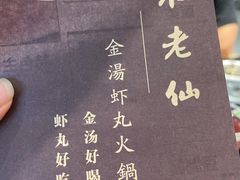 老仙
金湯虾丸火鍋
金汤好喝
虾丸好吃